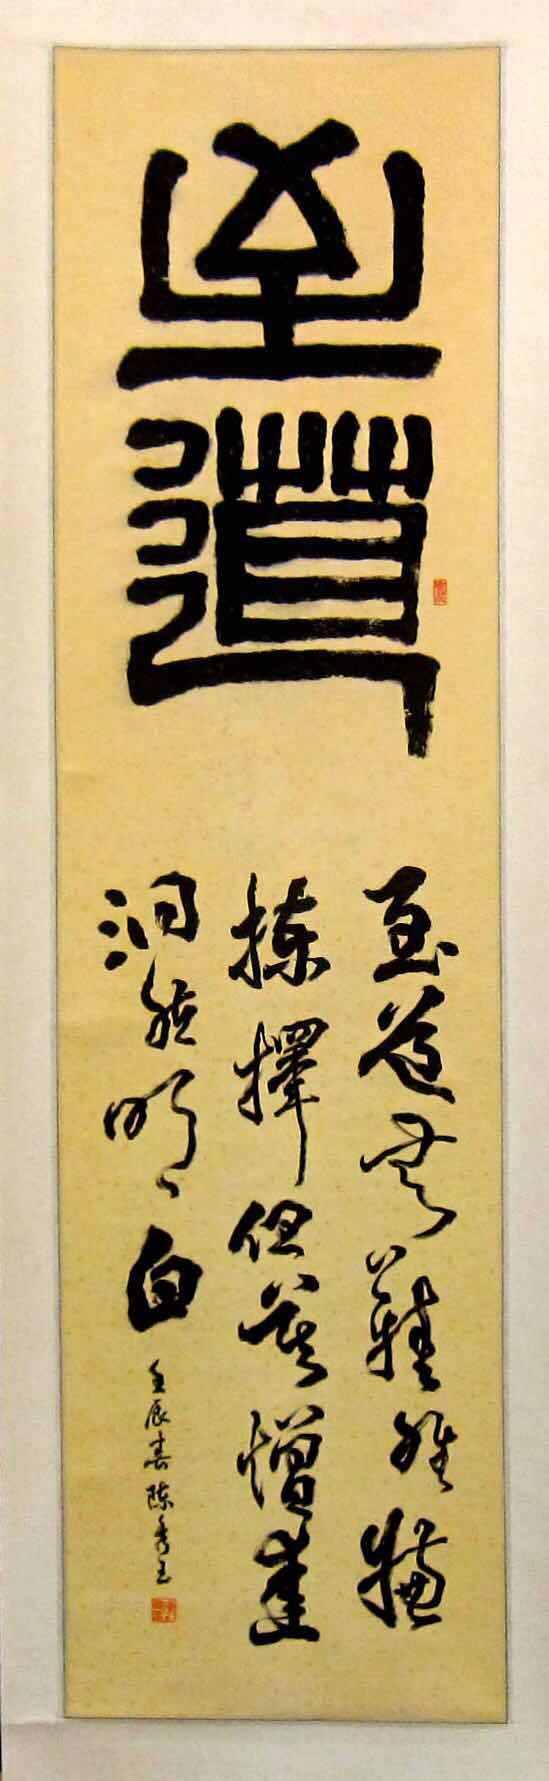 至道
至道无難唯嫌
揀擇但莫憎愛
洞然明白
壬辰春陳秀玉